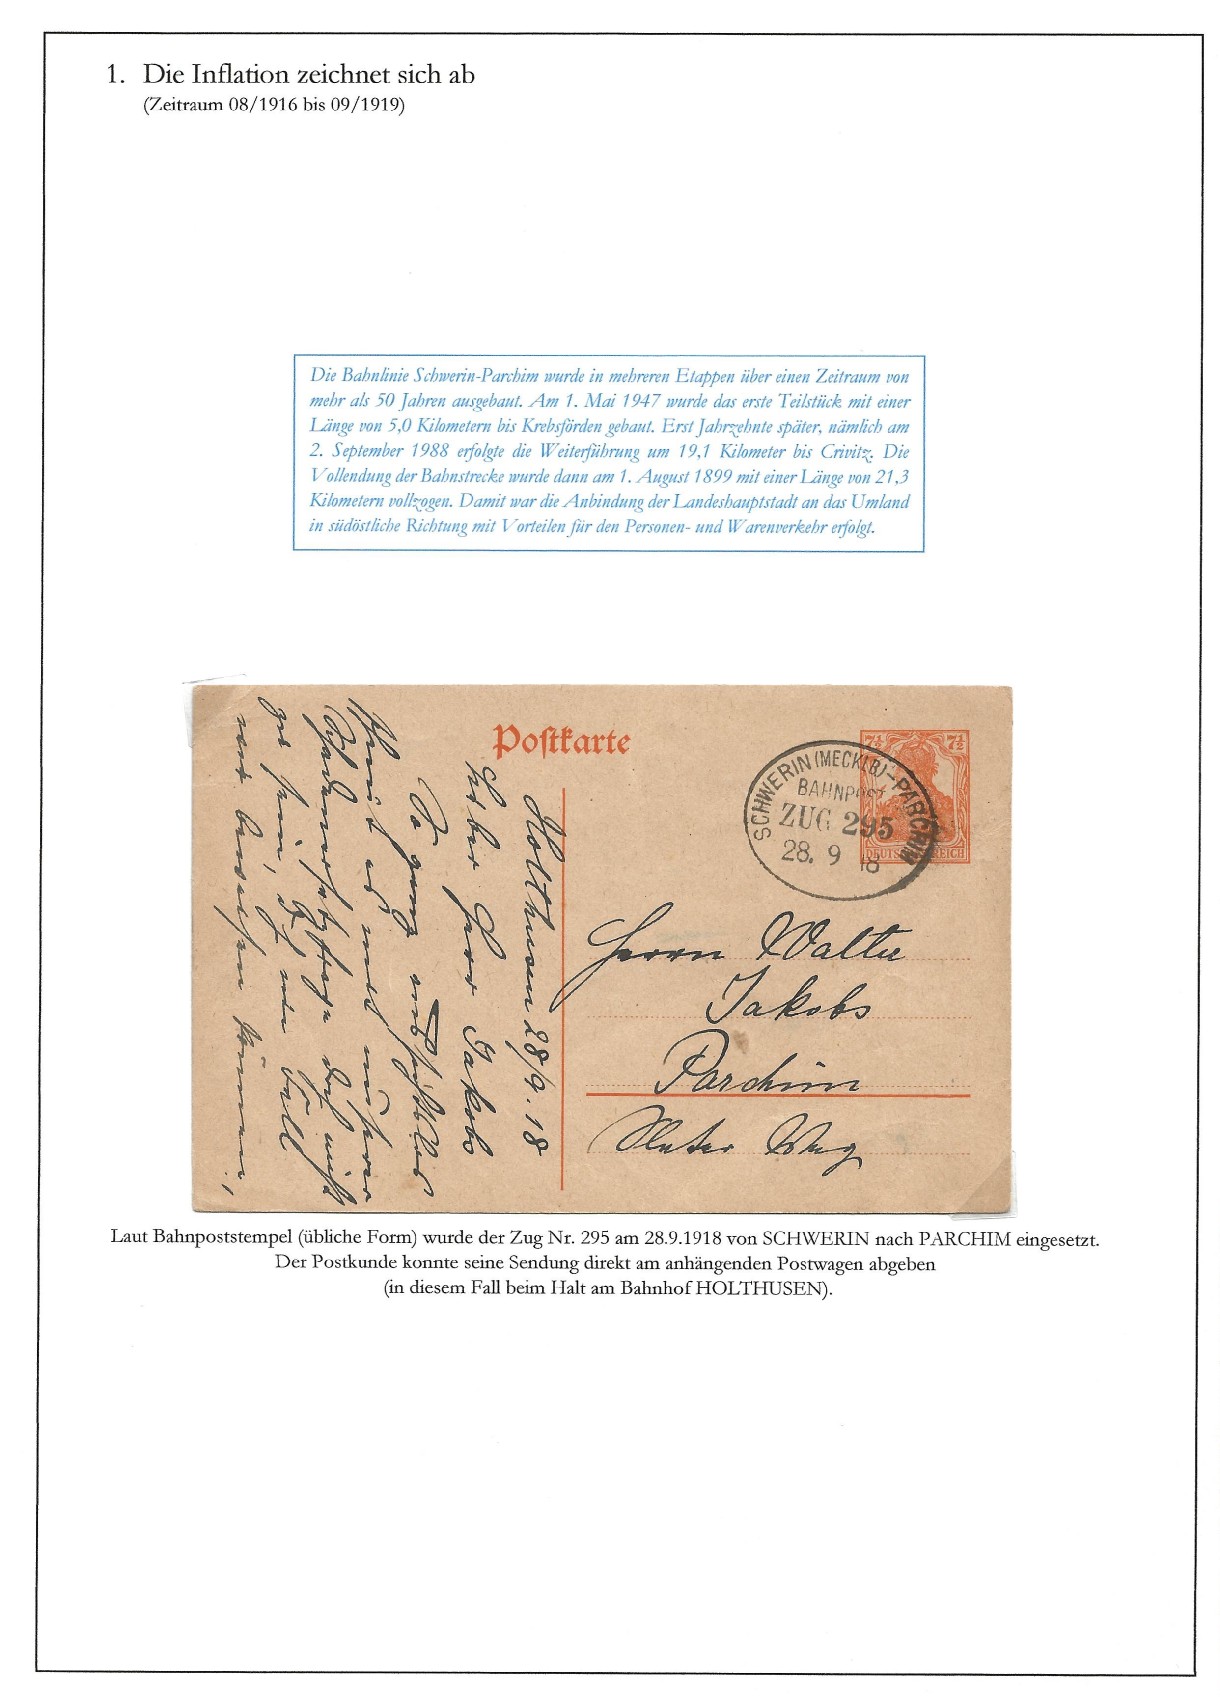 1. Die Inflation zeichnet sich ab
(Zeitraum 08/1916 bis 09/1919)
Die Bahnlinie Schwerin-Parchim wurde in mehreren Etappen über einen Zeitraum von
mehr als 50 Jahren ausgebaut. Am 1. Mai 1947 wurde das erste Teilstück mit einer
Länge von 5,0 Kilometern bis Krebsförden gebaut. Erst Jahrzehnte später, nämlich am
2. September 1988 erfolgte die Weiterführung um 19,1 Kilometer bis Crivitz. Die
Vollendung der Bahnstrecke wurde dann am 1. August 1899 mit einer Länge von 21,3
Kilometern vollzogen. Damit war die Anbindung der Landeshauptstadt an das Umland
in südöstliche Richtung mit Vorteilen für den Personen- und Warenverkehr erfolgt.
Postkarte
7½ 7½
DEUTSCHES REICH
SCHWERIN (MECKLB)-PARCHIM
BAHNPOST
ZUG 295
28. 9 18
Holthusen 28/9. 18
Lieber Herr Jakobs
Herrn Walter
Jakobs
Parchim
Weg
Laut Bahnpoststempel (übliche Form) wurde der Zug Nr. 295 am 28.9.1918 von SCHWERIN nach PARCHIM eingesetzt.
Der Postkunde konnte seine Sendung direkt am anhängenden Postwagen abgeben
(in diesem Fall beim Halt am Bahnhof HOLTHUSEN).